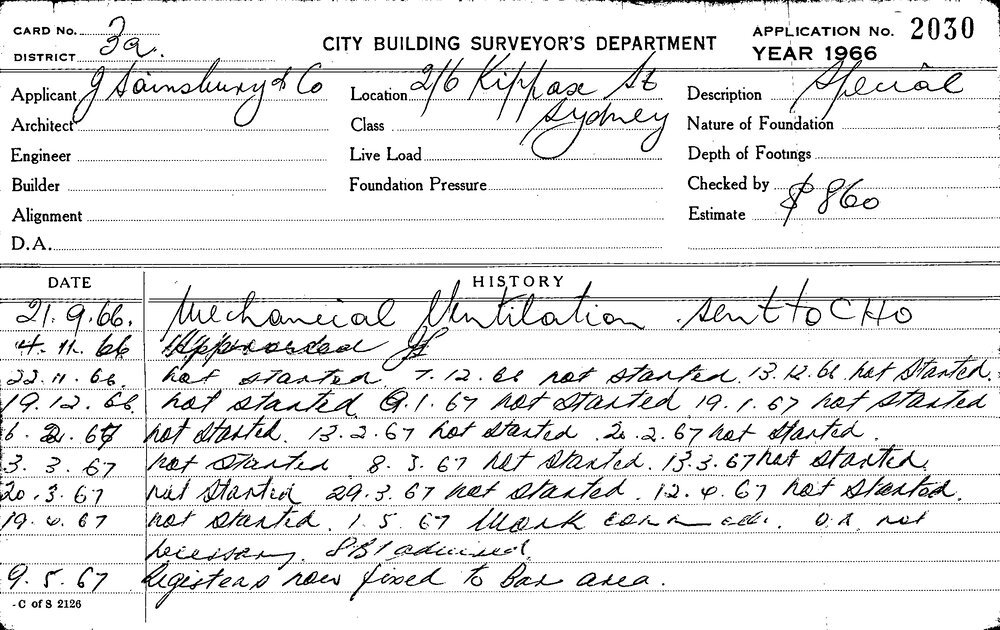 CARD No. 3a. CITY BUILDING SURVEYOR'S DEPARTMENT APPLICATION No. 2030
DISTRICT YEAR 1966
Applicant J Sainsbury & Co Location 2/6 Kippax St Description Special
Architect Class Sydney Nature of Foundation
Engineer Live Load Depth of Footings
Builder Foundation Pressure Checked by
Alignment Estimate $860
D.A.
DATE HISTORY
21.9.66. Mechanical Ventilation sent to CHO
4.11.66 Approved
22.11.66. not started 7.12.66 not started. 13.12.66 not started.
19.12.66 not started 9.1.67 not started 19.1.67 not started
6.2.67 not started. 13.2.67 not started. 20.2.67 not started.
3.3.67 not started 8.3.67 not started. 13.3.67 not started.
20.3.67 not started 29.3.67 not started. 12.4.67 not started.
19.4.67 not started. 1.5.67 Work not
necessary. advised.
9.5.67 Registers now fixed to Bar area.
C of S 2126